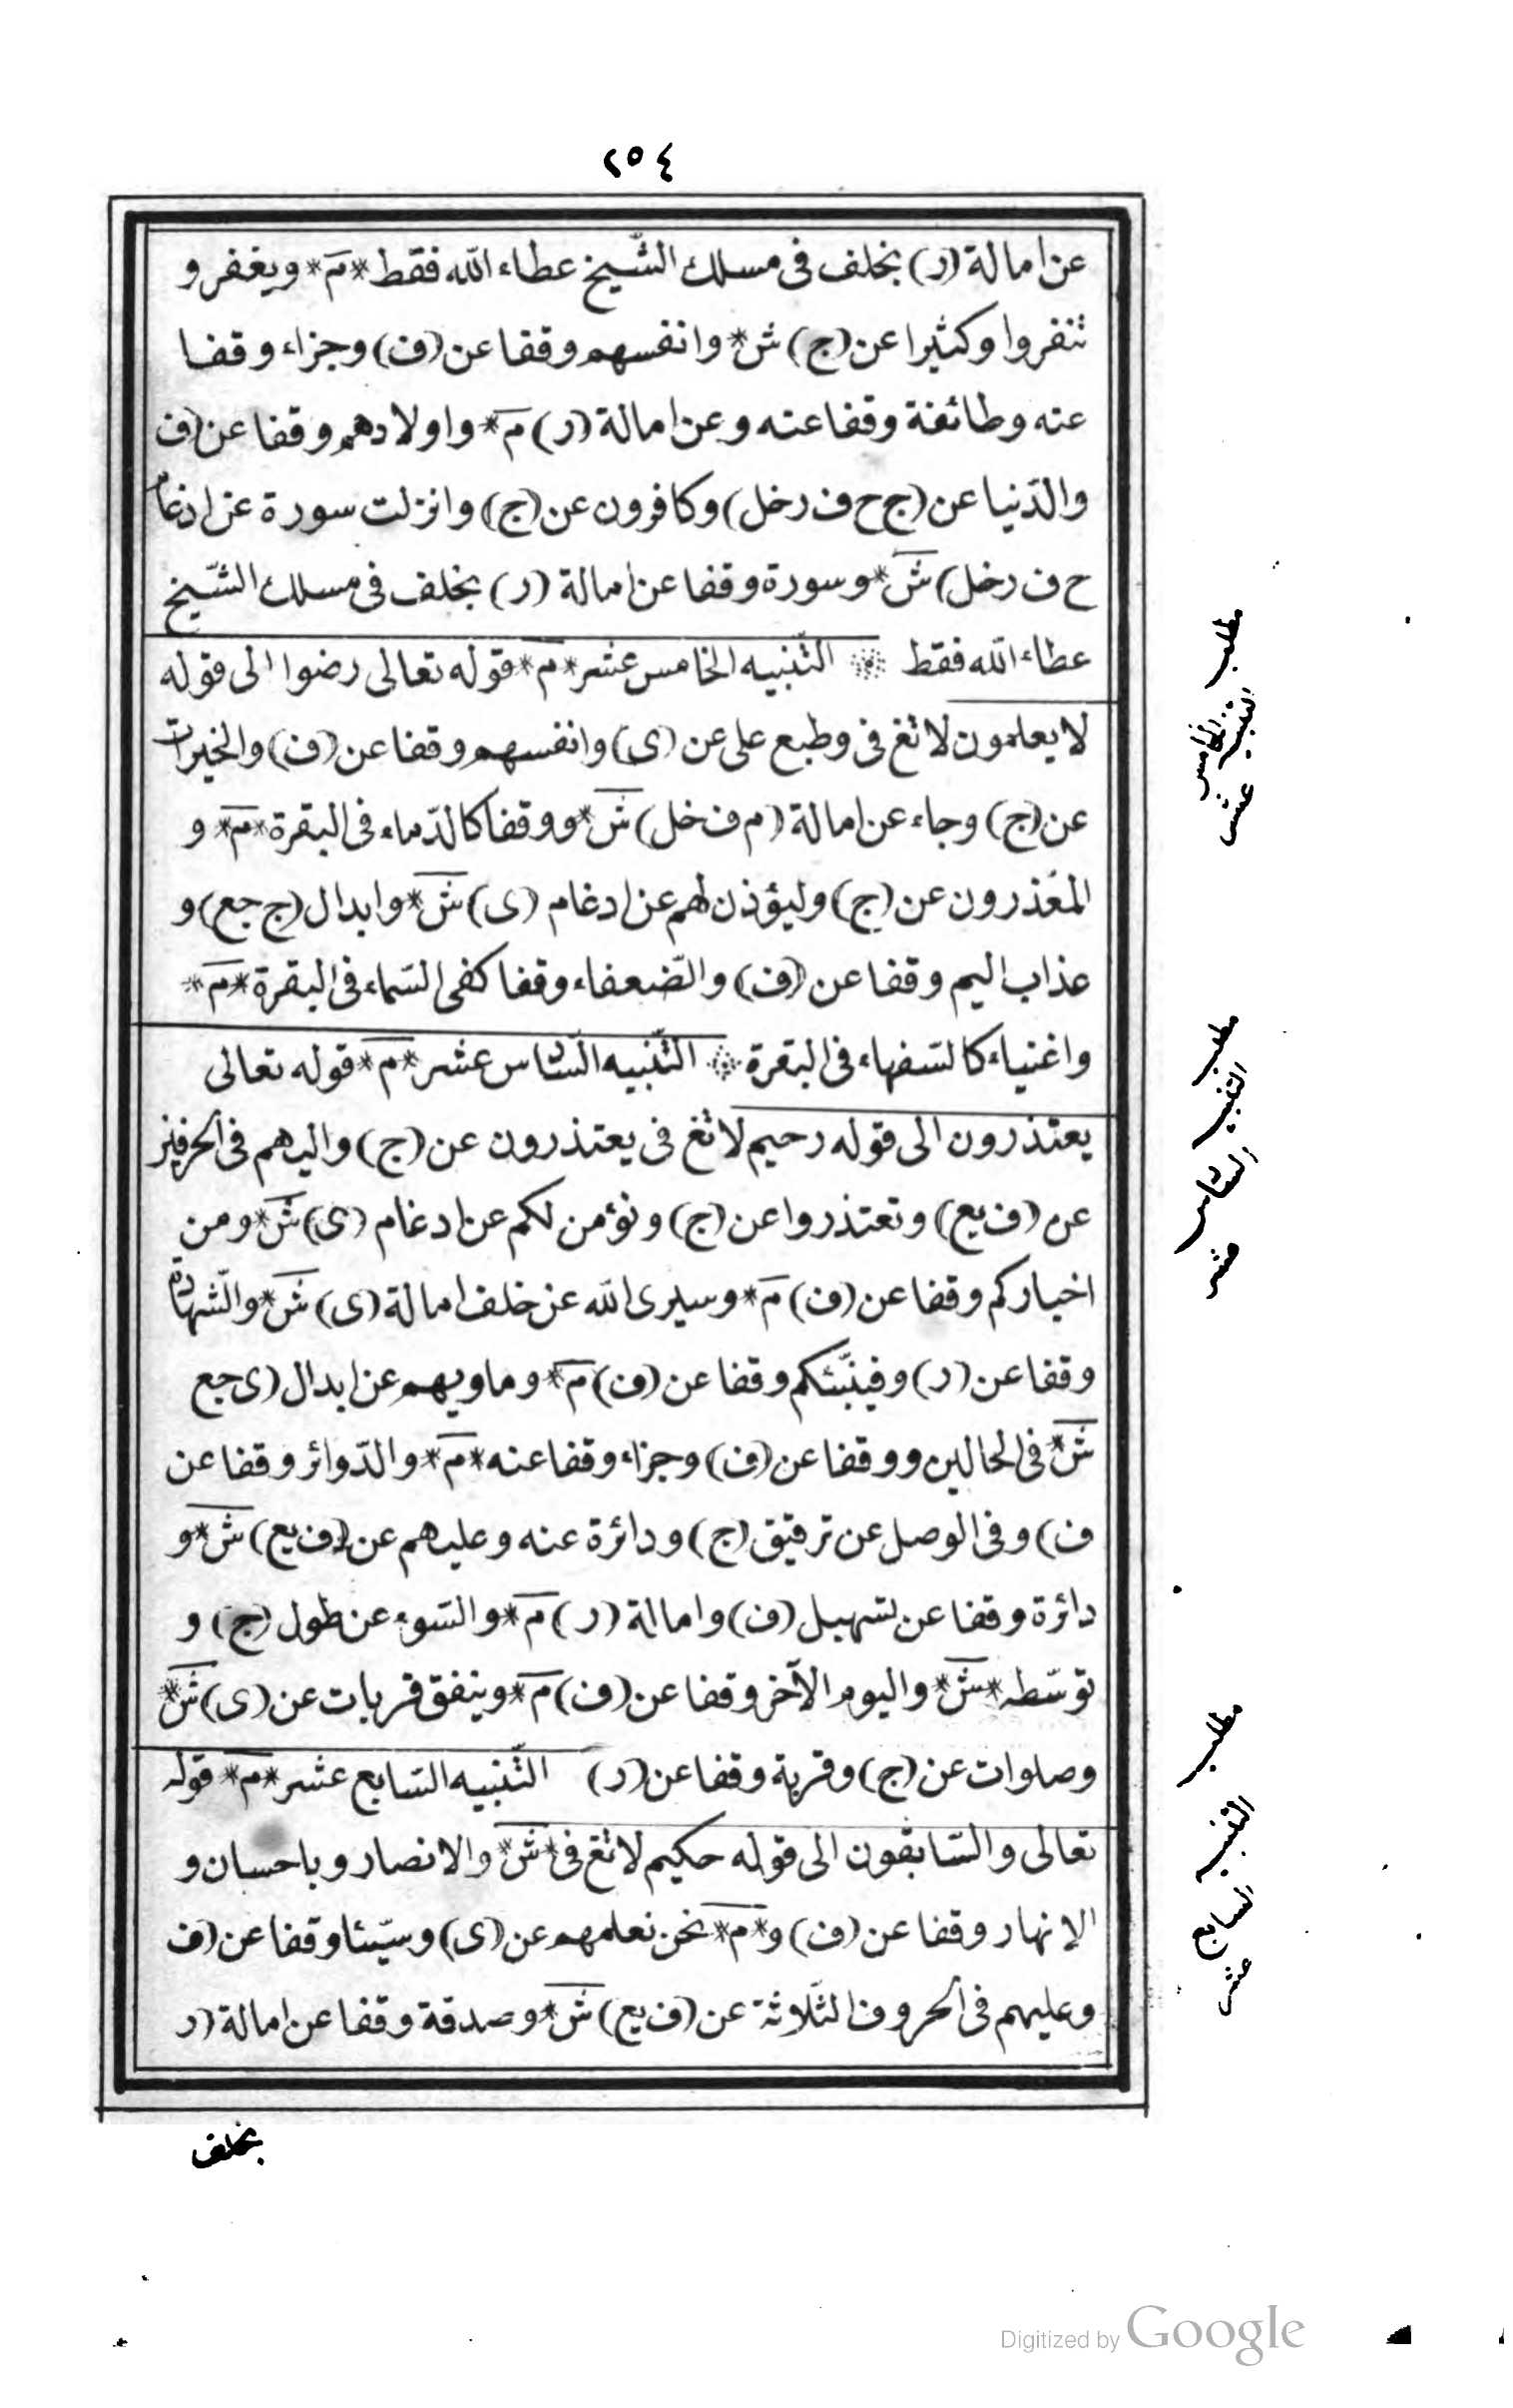 ٢٥٤
عن امالة (ر) بخلف فى مسلك الشّيخ عطاء الله فقط * م * ويغفر و
تنفروا وكثيرا عن (ج) ش * وانفسهم وقفا عن (ف) وجزاء وقفا
عنه وطائفة وقفا عنه وعن امالة (ر) م * واولادهم وقفا عن (ف
والدّنيا عن (ج ح ف ر خل) وكافرون عن (ج) وانزلت سورة عن ادغام
ح ف ر خل) ش * وسورة وقفا عن امالة (ر) بخلف فى مسلك الشّيخ
عطاء الله فقط ۞ التّنبيه الخامس عشر * م * قوله تعالى رضوا الى قوله
لا يعلمون لا تغ فى وطبع على عن (ى) وانفسهم وقفا عن (ف) والخيرات
عن (ج) وجاء عن امالة (م ف خل) ش * ووقفا كالدّماء فى البقرة * م * و
المعذرون عن (ج) وليؤذن لهم عن ادغام (ى) ش * وابدال (ج جع) و
عذاب اليم وقفا عن (ف) والضّعفاء وقفا كفى السّماء فى البقرة * م *
واغنياء كالسّفهاء فى البقرة ۞ التّنبيه السّادس عشر * م * قوله تعالى
يعتذرون الى قوله رحيم لا تغ فى يعتذرون عن (ج) واليهم فى الحرفين
عن (ف يع) وتعتذروا عن (ج) ونؤمن لكم عن ادغام (ى) ش * ومن
اخباركم وقفا عن (ف) م * وسيرى الله عن خلف امالة (ى) ش * والشّهادة
وقفا عن (ر) وفينبّئكم وقفا عن (ف) م * وماويهم عن ابدال (ى جع
ش * فى الحالين ووقفا عن (ف) وجزاء وقفا عنه * م * والدّوائر وقفا عن
ف) وفى الوصل عن ترقيق (ج) ودائرة عنه وعليهم عن (ف يع) ش * و
دائرة وقفا عن تسهيل (ف) وامالة (ر) م * والسّوء عن طول (ج) و
توسّطه * ش * واليوم الآخر وقفا عن (ف) م * وينفق قربات عن (ى) ش *
وصلوات عن (ج) وقربة وقفا عن (ر) التّنبيه السّابع عشر * م * قوله
تعالى والسّابقون الى قوله حكيم لا تغ فى * ش * والانصار وباحسان و
الانهار وقفا عن (ف) و * م * نحن نعلمهم عن (ى) وسيّئا وقفا عن (ف
وعليهم فى الحروف الثّلاثة عن (ف يع) ش * وصدقة وقفا عن امالة (ر
بخلف
مطلب
التنبيه الخامس
عشر
مطلب
التنبيه السادس
عشر
مطلب
التنبيه السابع
عشر
Digitized by Google